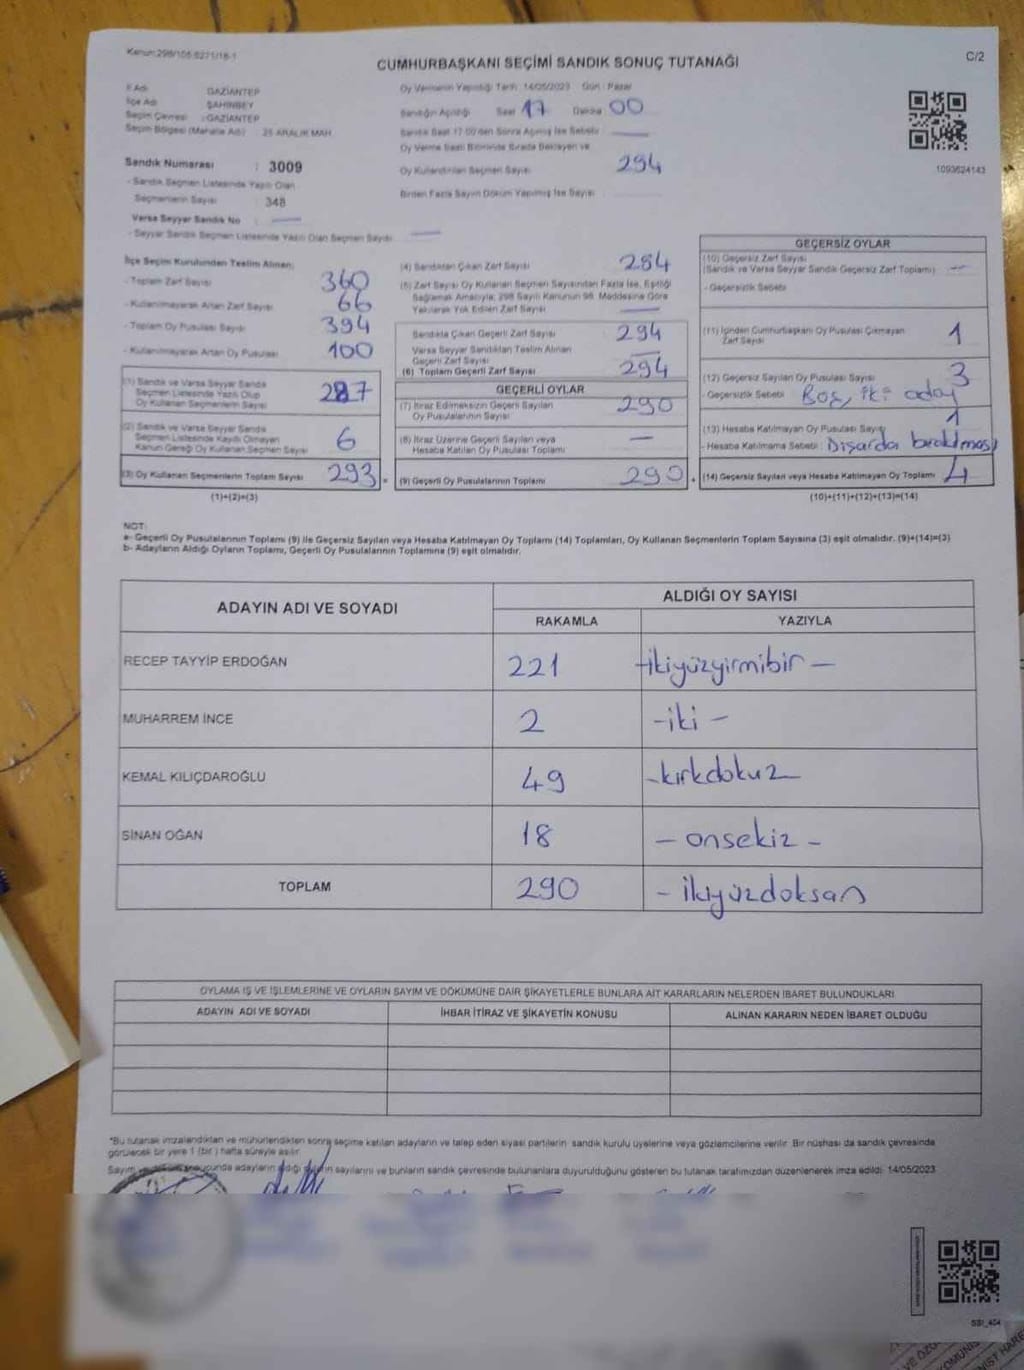 Kanun:298/105.6271/18-1
CUMHURBAŞKANI SEÇİMİ SANDIK SONUÇ TUTANAĞI
C/2
İl Adı GAZİANTEP
İlçe Adı ŞAHİNBEY
Seçim Çevresi : GAZİANTEP
Seçim Bölgesi (Mahalle Adı) 25 ARALIK MAH.
Sandık Numarası : 3009
- Sandık Seçmen Listesinde Yazılı Olan
Seçmenlerin Sayısı 348
Varsa Seyyar Sandık No :
- Seyyar Sandık Seçmen Listesinde Yazılı Olan Seçmen Sayısı
Oy Vermenin Yapıldığı Tarih: 14/05/2023 Gün : Pazar
Sandığın Açıldığı Saat 17 Dakika 00
Sandık Saat 17:00'den Sonra Açılmış İse Sebebi
Oy Verme Saati Bitiminde Sırada Bekleyen ve
Oy Kullandırılan Seçmen Sayısı 294
Birden Fazla Sayım Döküm Yapılmış İse Sayısı
1093624143
İlçe Seçim Kurulundan Teslim Alınan:
- Toplam Zarf Sayısı 360
- Kullanılmayarak Artan Zarf Sayısı 66
- Toplam Oy Pusulası Sayısı 394
- Kullanılmayarak Artan Oy Pusulası 100
(1) Sandık ve Varsa Seyyar Sandık
Seçmen Listesinde Yazılı Olup
Oy Kullanan Seçmenlerin Sayısı 287
(2) Sandık ve Varsa Seyyar Sandık
Seçmen Listesinde Kayıtlı Olmayan
Kanun Gereği Oy Kullanan Seçmen Sayısı 6
(3) Oy Kullanan Seçmenlerin Toplam Sayısı 293
(1)+(2)=(3)
(4) Sandıktan Çıkan Zarf Sayısı 284
(5) Zarf Sayısı Oy Kullanan Seçmen Sayısından Fazla İse, Eşitliği
Sağlamak Amacıyla, 298 Sayılı Kanunun 98. Maddesine Göre
Yakılarak Yok Edilen Zarf Sayısı
Sandıkta Çıkan Geçerli Zarf Sayısı 294
Varsa Seyyar Sandıktan Teslim Alınan
Geçerli Zarf Sayısı —
(6) Toplam Geçerli Zarf Sayısı 294
GEÇERLİ OYLAR
(7) İtiraz Edilmeksizin Geçerli Sayılan
Oy Pusulalarının Sayısı 290
(8) İtiraz Üzerine Geçerli Sayılan veya
Hesaba Katılan Oy Pusulası Toplamı —
(9) Geçerli Oy Pusulalarının Toplamı 290
GEÇERSİZ OYLAR
(10) Geçersiz Zarf Sayısı
(Sandık ve Varsa Seyyar Sandık Geçersiz Zarf Toplamı) —
- Geçersizlik Sebebi
(11) İçinden Cumhurbaşkanı Oy Pusulası Çıkmayan
Zarf Sayısı 1
(12) Geçersiz Sayılan Oy Pusulası Sayısı 3
- Geçersizlik Sebebi Boş, iki aday
(13) Hesaba Katılmayan Oy Pusulası Sayısı 1
- Hesaba Katılmama Sebebi : Dışarda bırakılması
(14) Geçersiz Sayılan veya Hesaba Katılmayan Oy Toplamı 4
(10)+(11)+(12)+(13)=(14)
NOT:
a- Geçerli Oy Pusulalarının Toplamı (9) ile Geçersiz Sayılan veya Hesaba Katılmayan Oy Toplamı (14) Toplamları, Oy Kullanan Seçmenlerin Toplam Sayısına (3) eşit olmalıdır. (9)+(14)=(3)
b- Adayların Aldığı Oyların Toplamı, Geçerli Oy Pusulalarının Toplamına (9) eşit olmalıdır.
ADAYIN ADI VE SOYADI
ALDIĞI OY SAYISI
RAKAMLA YAZIYLA
RECEP TAYYİP ERDOĞAN 221 -ikiyüzyirmibir —
MUHARREM İNCE 2 -iki -
KEMAL KILIÇDAROĞLU 49 -kırkdokuz
SİNAN OĞAN 18 - onsekiz -
TOPLAM 290 - ikiyüzdoksan
OYLAMA İŞ VE İŞLEMLERİNE VE OYLARIN SAYIM VE DÖKÜMÜNE DAİR ŞİKAYETLERLE BUNLARA AİT KARARLARIN NELERDEN İBARET BULUNDUKLARI
ADAYIN ADI VE SOYADI İHBAR İTİRAZ VE ŞİKAYETİN KONUSU ALINAN KARARIN NEDEN İBARET OLDUĞU
*Bu tutanak imzalandıktan ve mühürlendikten sonra seçime katılan adayların ve talep eden siyasi partilerin sandık kurulu üyelerine veya gözlemcilerine verilir. Bir nüshası da sandık çevresinde
görülecek bir yere 1 (bir) hafta süreyle asılır.
Sayım sonucunda adayların aldığı oyların sayılarını ve bunların sandık çevresinde bulunanlara duyurulduğunu gösteren bu tutanak tarafımızdan düzenlenerek imza edildi. 14/05/2023